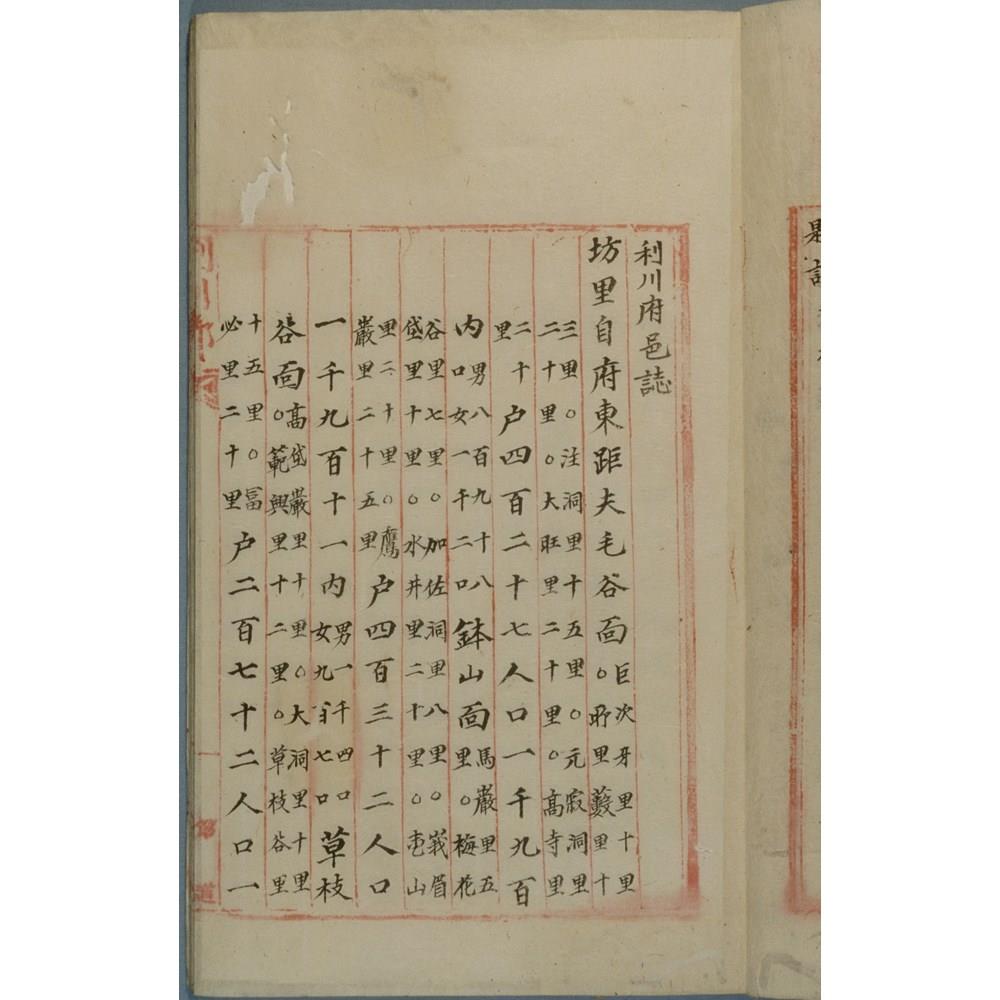 利川府邑誌
坊里自府東距夫毛谷面
巨次牙里十里
里藪里十
三里○注洞里十五里○元寂洞里
二十里○大旺里二十里○高寺里
二十
里
户四百二十七人口一千九百
内
男八百九十八
口女一千二口
鉢山面
馬巖里五
里○梅花
谷里七里○加佐洞里八里○峩眉
垈里十里○水井里二十里○山
里二十里○鷹
巖里二十五里
户四百三十二人口
一千九百十一内
男一千四口
女九百七口
草枝
谷面
高垈巖里十里○大洞里十里
○範興里十二里○草枝谷里
十五里○冨
必里二十里
户二百七十二人口一